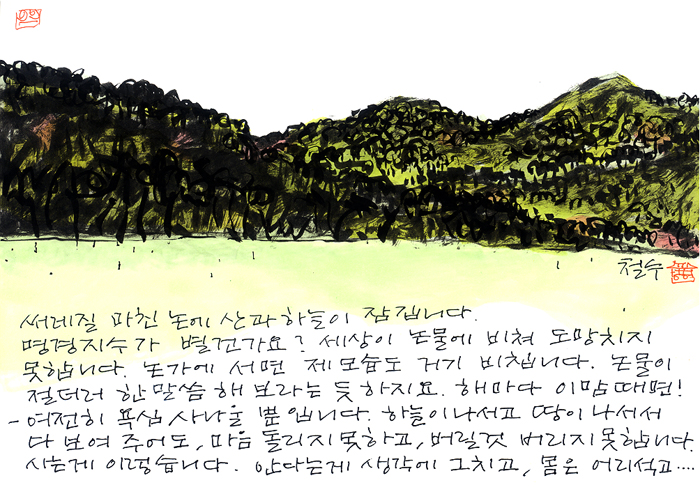 철수
써레질 마친 논에 산과 하늘이 잠깁니다.
명경지수가 별건가요? 세상이 논물에 비쳐 도망치지
못합니다. 논가에 서면 제 모습도 거기 비칩니다. 논물이
절더러 한 말씀 해 보라는 듯 하지요. 해마다 이맘때면!
- 여전히 욕심 사나울 뿐입니다. 하늘이 나서고 땅이 나서서
다 보여 주어도, 마음 돌리지 못하고, 버릴 것 버리지 못합니다.
사는게 이렇습니다. 안다는게 생각에 그치고, 몸은 어리석고....